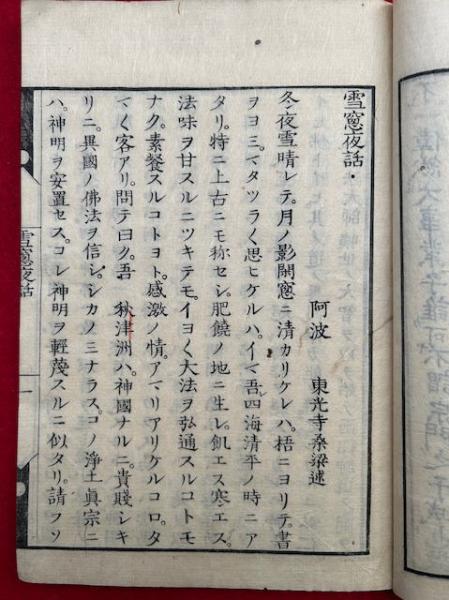 雪窻夜話
阿波　東光寺桑梁述
冬ノ夜雪晴レテ。月ノ影閑窻ニ清カリケレハ。梧ニヨリテ。書
ヲヨミ。マタツラ〱思ヒケルハ。イマ吾四海清平ノ時ニア
タリ。特ニ上古ニモ称セシ。肥饒ノ地ニ生レ。飢エス寒エス。
法味ヲ甘スルニツキテモ。イヨ〱大法ヲ弘通スルコトモ
ナク。素餐スルコトヨト。感激ノ情。アマリアリケルコロ。タ
マ〱客アリ。問テ曰ク。吾　秋津洲ハ。神國ナルニ。貴賤シキ
リニ。異國ノ佛法ヲ信シ。シカノミナラス。コノ浄土真宗ニ
ハ。神明ヲ安置セス。コレ神明ヲ輕蔑スルニ似タリ。請フソ
雪窻夜話
一